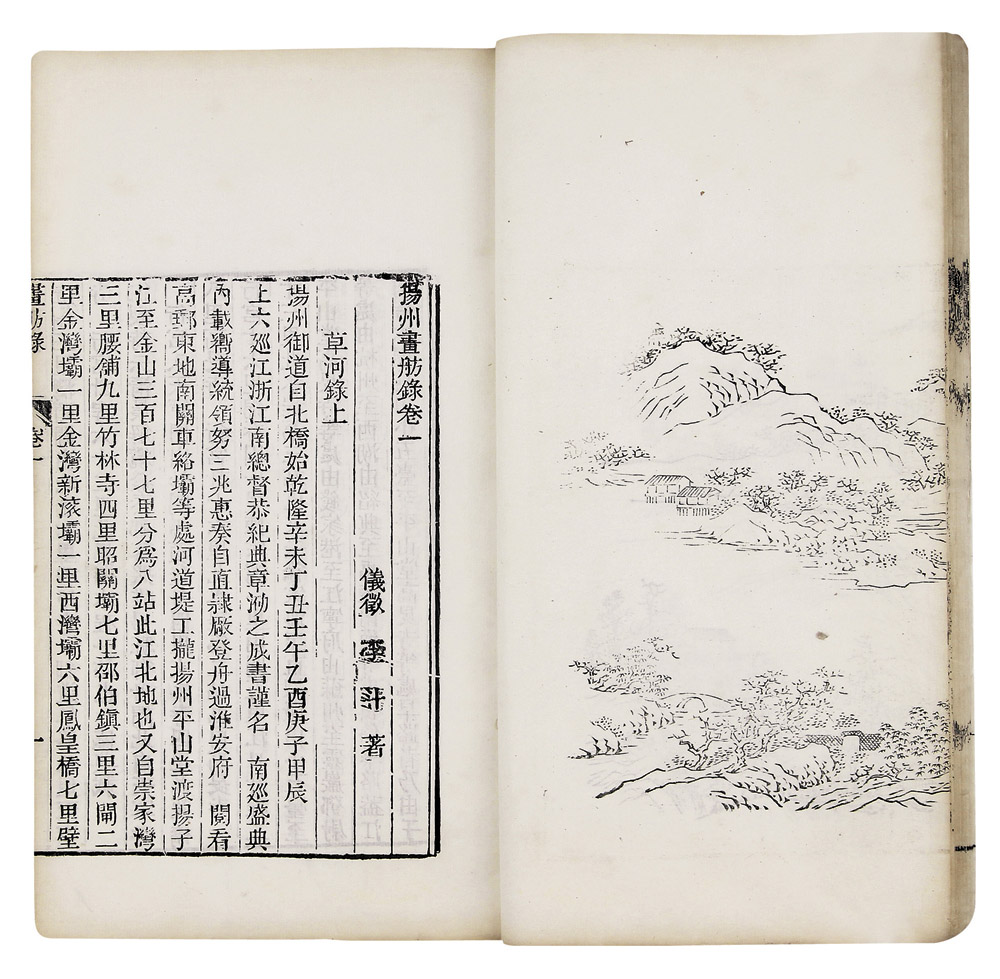 揚州畫舫錄卷一
儀徵 李斗 著
草河錄上
揚州御道自北橋始乾隆辛未丁丑壬午乙酉庚子甲辰
上六廵江浙江南總督恭紀典章泐之成書謹名 南廵盛典
內載嚮導統領努三兆惠奏自直隸厰登舟過淮安府 閱看
高郵東地南關車絡壩等處河道堤工攏揚州平山堂渡揚子
江至金山三百七十七里分爲八站此江北地也又自崇家灣
三里腰舖九里竹林寺四里昭關壩七里邵伯鎭三里六閘二
里金灣壩一里金灣新滚壩一里西灣壩六里鳳皇橋七里壁
畫舫錄 卷一 一